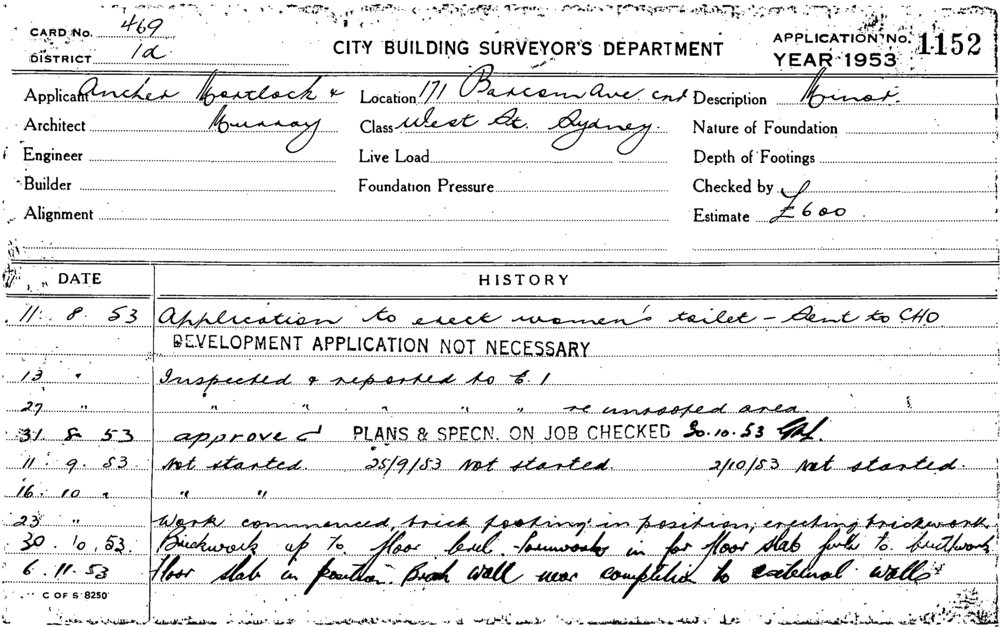 CARD No. 469
DISTRICT 1a
CITY BUILDING SURVEYOR'S DEPARTMENT
APPLICATION No. 1152
YEAR 1953
Applicant Ancher Mortlock &
Architect Murray
Engineer
Builder
Alignment
Location 171 Barcom Ave. cnr
Class West St. Sydney.
Live Load
Foundation Pressure
Description Minor.
Nature of Foundation
Depth of Footings
Checked by
Estimate £600
DATE HISTORY
11. 8. 53 Application to erect women's toilet - Sent to CHO
DEVELOPMENT APPLICATION NOT NECESSARY
13 " Inspected & reported to E.1
27 " " " " " " re unroofed area
31 8 53 approved PLANS & SPECN. ON JOB CHECKED 30.10.53
11. 9. 53 Not started. 25/9/53 Not started. 2/10/53 Not started.
16. 10 " " "
23 " Work commenced, brick footing in position, erecting brickwork.
30. 10. 53. Brickwork up to floor level. Formwork in for floor slab
6. 11. 53 Floor slab in position. Brick wall near completion to external walls
C OF S 8250